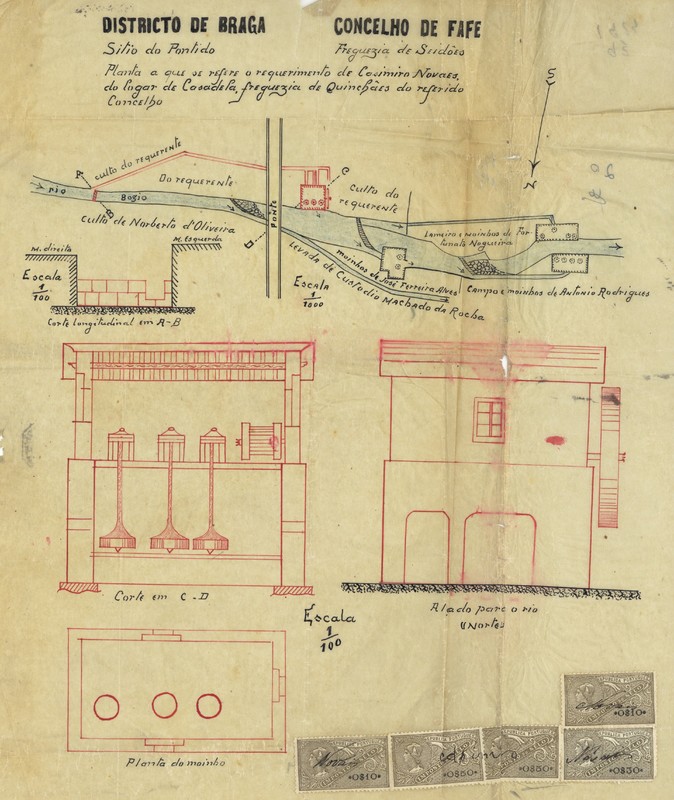 DISTRICTO DE BRAGA
CONCELHO DE FAFE
Sitio do Pontido
Freguezia de Seidões
Planta a que se refere o requerimento de Casimiro Novaes,
do logar de Casadela, freguezia de Quinchães do referido
Concelho
S
N
A
culto do requerente
C
rio
Do requerente
Bogio
Ponte
culto do
requerente
B
Culto de Norberto d'Oliveira
D
Lameiro e moinhos de For
tunato Nogueira
M. direita
M. Esquerda
moinhos de José Ferreira Alves
Levada de Custodio Machado da Rocha
Campo e moinhos de Antonio Rodrigues
Escala
1
100
Escala
1
1000
Corte longitudinal em A-B
Corte em C-D
Alçado para o rio
(Norte)
Escala
1
100
Planta do moinho
REPUBLICA PORTUGUESA
0$10
REPUBLICA PORTUGUESA
0$10
REPUBLICA PORTUGUESA
0$50
REPUBLICA PORTUGUESA
0$50
0$50